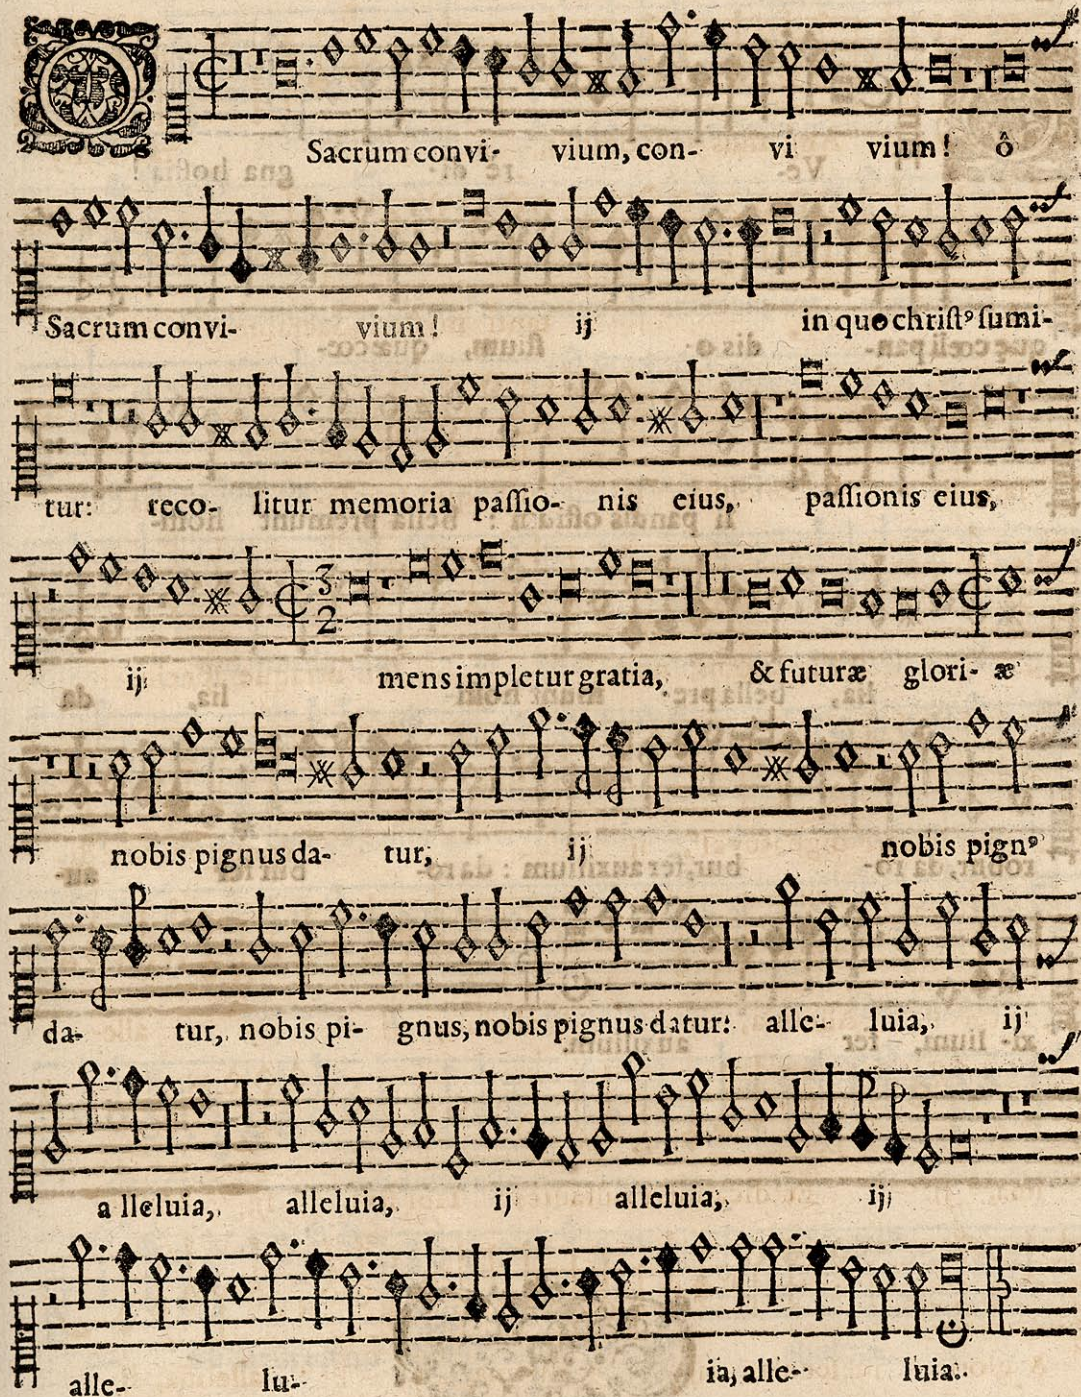 O
Sacrum convi- vium, con- vi vium! ô
Sacrum convi- vium! ij in quo christꝰ sumi-
tur: reco- litur memoria passio- nis eius, passionis eius,
ij mens impletur gratia, & futuræ glori- æ
nobis pignus da- tur, ij nobis pignꝰ
da- tur, nobis pi- gnus, nobis pignus datur: alle- luia, ij
a lleluia, alleluia, ij alleluia, ij
alle- lu- ia, alle- luia.